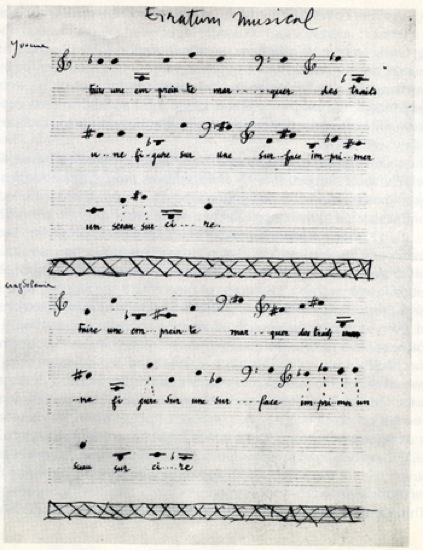 Erratum Musical
Yvonne
Faire une em prein te mar.....quer des traits
u..ne fi-gure sur une sur-face im-pri-mer
un sceau sur ci..re.
Faire une em..prein te mar...quer des traits
..ne fi gure sur une sur..face im-pri-mer un
sceau sur ci..re